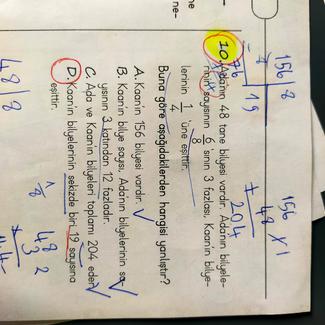 10. Ada'nın 48 tane bilyesi vardır. Ada'nın bilyele-
rinin sayısının 6/8 'sının 3 fazlası, Kaan'ın bilye-
lerinin 1/4 'üne eşittir.
Buna göre aşağıdakilerden hangisi yanlıştır?
A. Kaan'ın 156 bilyesi vardır.
B. Kaan'ın bilye sayısı, Ada'nın bilyelerinin sa-
yısının 3 katından 12 fazladır.
C. Ada ve Kaan'ın bilyeleri toplamı 204 eder.
D. Kaan'ın bilyelerinin sekizde biri 19 sayısına
eşittir.
156 8
76
19
156
+ 48
204
48 8
48